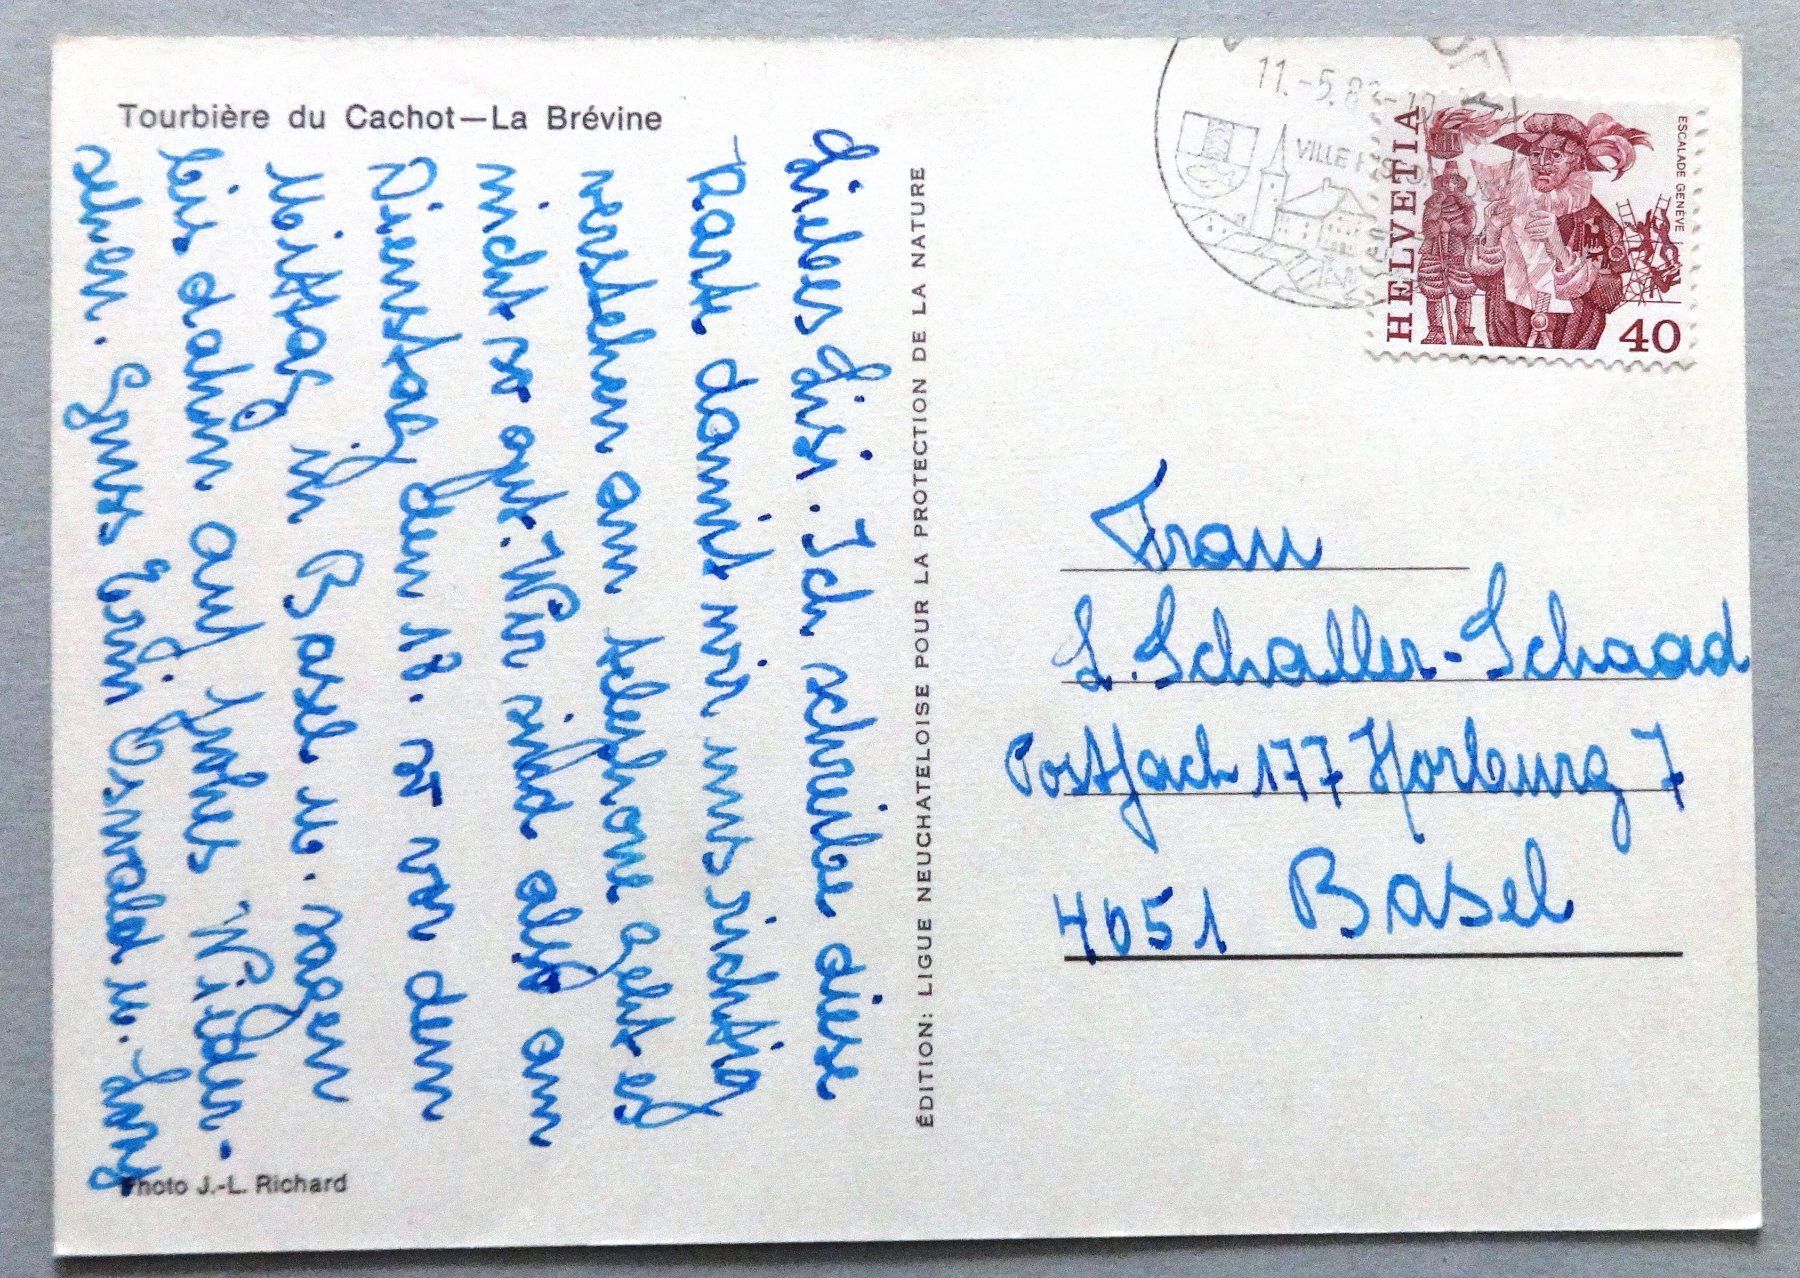 Tourbière du Cachot—La Brévine
Liebes Lisi. Ich schreibe diese
Kart damit wir uns richtig
verstehen am telephone geht es
nicht so gut. Wir sind also am
Dienstag den 18. so vor dem
Mittag in Basel u. sagen
bis dahin auf frohes Wieder-
sehen. Gruss Oswald u.
Photo J.-L. Richard
ÉDITION: LIGUE NEUCHATELOISE POUR LA PROTECTION DE LA NATURE
11.-5.8
VILLE
HELVETIA
ESCALADE GENÈVE
40
Frau
L. Schaller-Schaad
Postfach 177 Horburg 7
4051 Basel